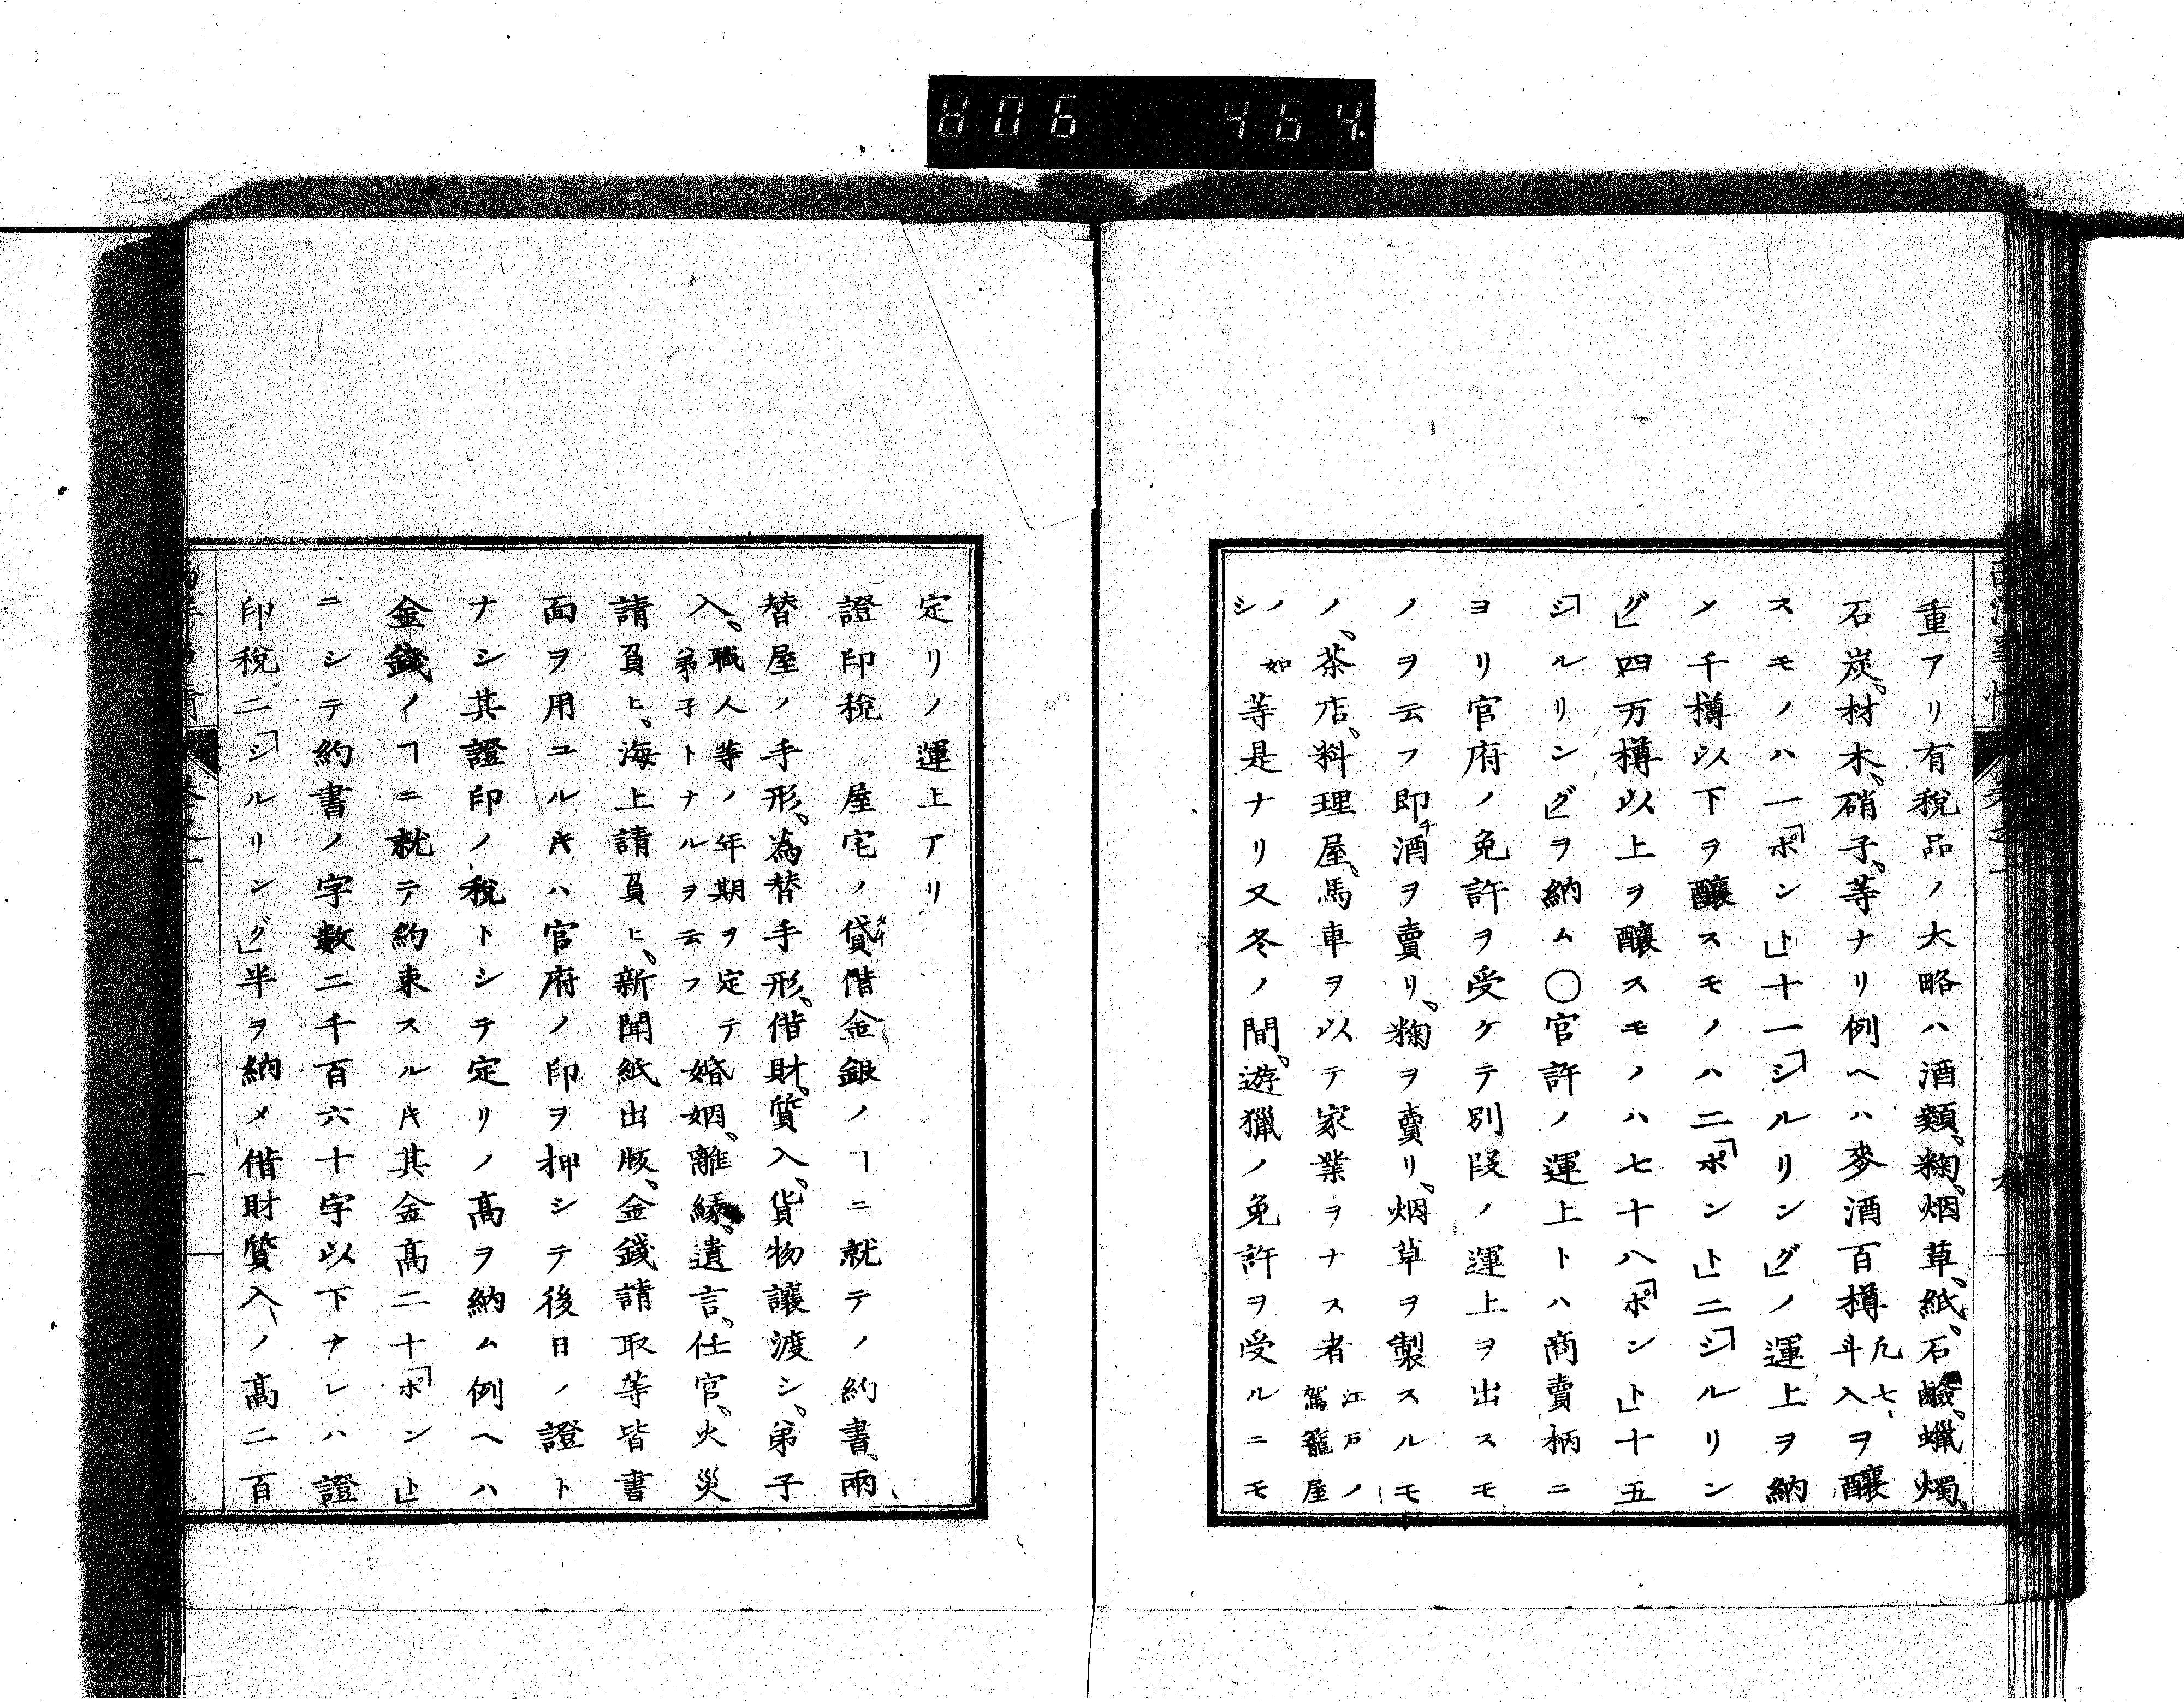 806 464.
重アリ有税品ノ大略ハ酒類、麹、烟草、紙、石鹼、蠟燭、
石炭、材木、硝子、等ナリ例ヘハ麥酒百樽凡七斗入ヲ釀
スモノハ一「ポンド」十一「シルリング」ノ運上ヲ納
メ千樽以下ヲ釀スモノハ二「ポンド」二「シルリン
グ」四万樽以上ヲ釀スモノハ七十八「ポンド」十五
「シルリング」ヲ納ム〇官許ノ運上トハ商賣柄ニ
ヨリ官府ノ免許ヲ受ケテ別段ノ運上ヲ出スモ
ノヲ云フ即チ酒ヲ賣リ、麹ヲ賣リ、烟草ヲ製スルモ
ノ、茶店、料理屋、馬車ヲ以テ家業ヲナス者江戸ノ駕籠屋
ノ如シ等是ナリ又冬ノ間、遊獵ノ免許ヲ受ルニモ
定リノ運上アリ
證印税 屋宅ノ貸借金銀ノヿニ就テノ約書、兩
替屋ノ手形、為替手形、借財、質入、貨物讓渡シ、弟子
入、職人等ノ年期ヲ定テ弟子トナルヲ云フ婚姻、離緣、遺言、任官、火災
請負ヒ、海上請負ヒ、新聞紙出版、金錢請取等皆書
面ヲ用ユルキハ官府ノ印ヲ押シテ後日ノ證ト
ナシ其證印ノ税トシテ定リノ高ヲ納ム例ヘハ
金錢ノヿニ就テ約束スルキ其金高二十「ポンド」
ニシテ約書ノ字数二千百六十字以下ナレハ證
印税二「シルリング」半ヲ納メ借財質入ノ高二百